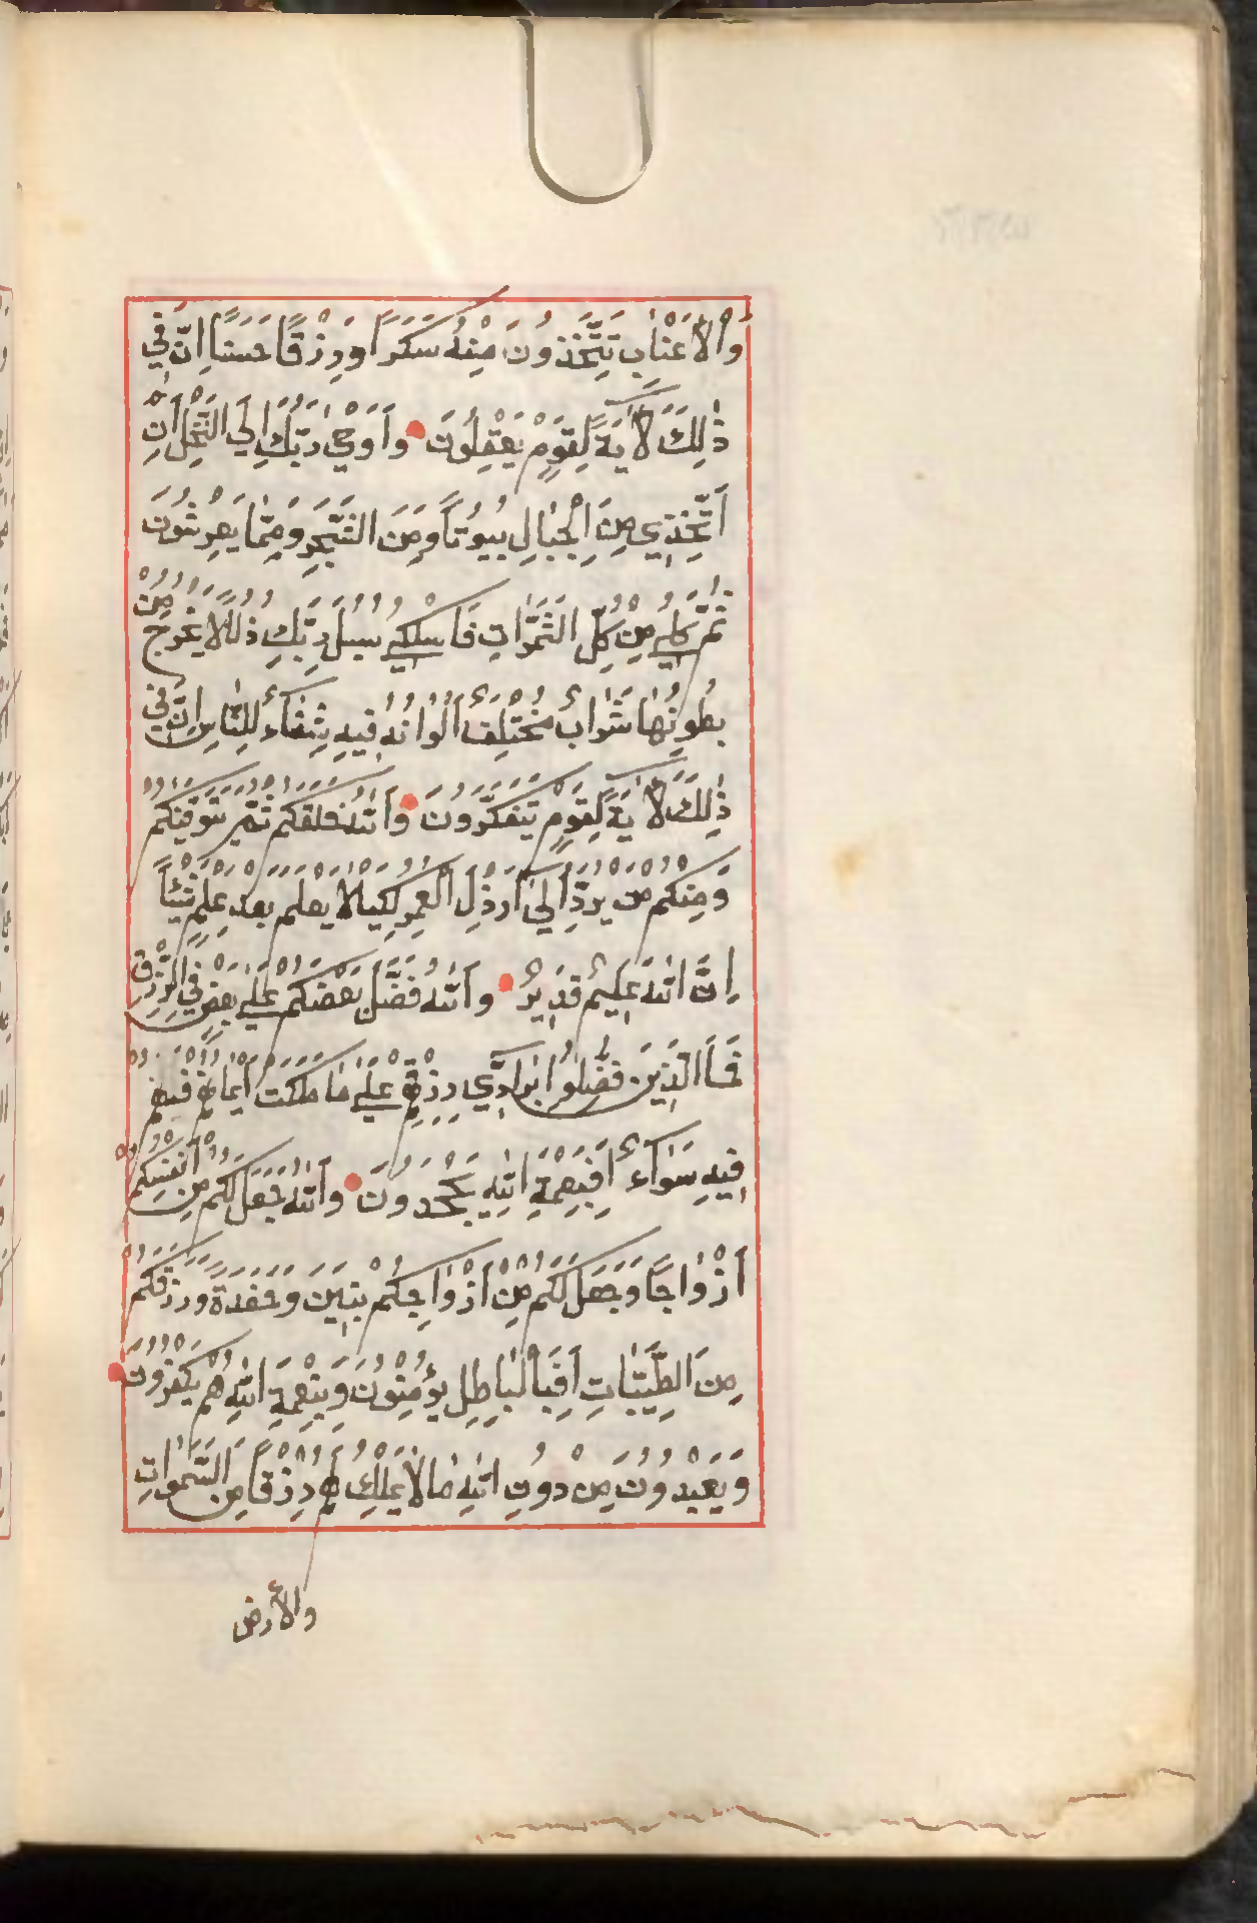 وَالْأَعْنَابِ تَتَّخِذُونَ مِنْهُ سَكَرًا وَرِزْقًا حَسَنًا اِنَّ فِي
ذٰلِكَ لَأٰيَةً لِقَوْمٍ يَعْقِلُونَ وَاَوْحٰي رَبُّكَ اِلَي النَّحْلِ اَنِ
اتَّخِذِي مِنَ الْجِبَالِ بُيُوتًا وَمِنَ الشَّجَرِ وَمِمَّا يَعْرِشُونَ
ثُمَّ كُلِي مِنْ كُلِّ الثَّمَرَاتِ فَاسْلُكِي سُبُلَ رَبِّكِ ذُلُلًا يَخْرُجُ مِنْ
بُطُونِهَا شَرَابٌ مُخْتَلِفٌ اَلْوَانُهُ فِيهِ شِفَاءٌ لِلنَّاسِ اِنَّ فِي
ذٰلِكَ لَأٰيَةً لِقَوْمٍ يَتَفَكَّرُونَ وَاللّٰهُ خَلَقَكُمْ ثُمَّ يَتَوَفّٰيكُمْ
وَمِنْكُمْ مَنْ يُرَدُّ اِلٰي اَرْذَلِ الْعُمُرِ لِكَيْلَا يَعْلَمَ بَعْدَ عِلْمٍ شَيْئًا
اِنَّ اللّٰهَ عَلِيمٌ قَدِيرٌ وَاللّٰهُ فَضَّلَ بَعْضَكُمْ عَلٰي بَعْضٍ فِي الرِّزْقِ
فَمَا الَّذِينَ فُضِّلُوا بِرَادِّي رِزْقِهِمْ عَلٰي مَا مَلَكَتْ اَيْمَانُهُمْ فَهُمْ
فِيهِ سَوَاءٌ اَفَبِنِعْمَةِ اللّٰهِ يَجْحَدُونَ وَاللّٰهُ جَعَلَ لَكُمْ مِنْ اَنْفُسِكُمْ
اَزْوَاجًا وَجَعَلَ لَكُمْ مِنْ اَزْوَاجِكُمْ بَنِينَ وَحَفَدَةً وَرَزَقَكُمْ
مِنَ الطَّيِّبَاتِ اَفَبِالْبَاطِلِ يُؤْمِنُونَ وَبِنِعْمَةِ اللّٰهِ هُمْ يَكْفُرُونَ
وَيَعْبُدُونَ مِنْ دُونِ اللّٰهِ مَا لَا يَمْلِكُ لَهُمْ رِزْقًا مِنَ السَّمٰوَاتِ
والأرض